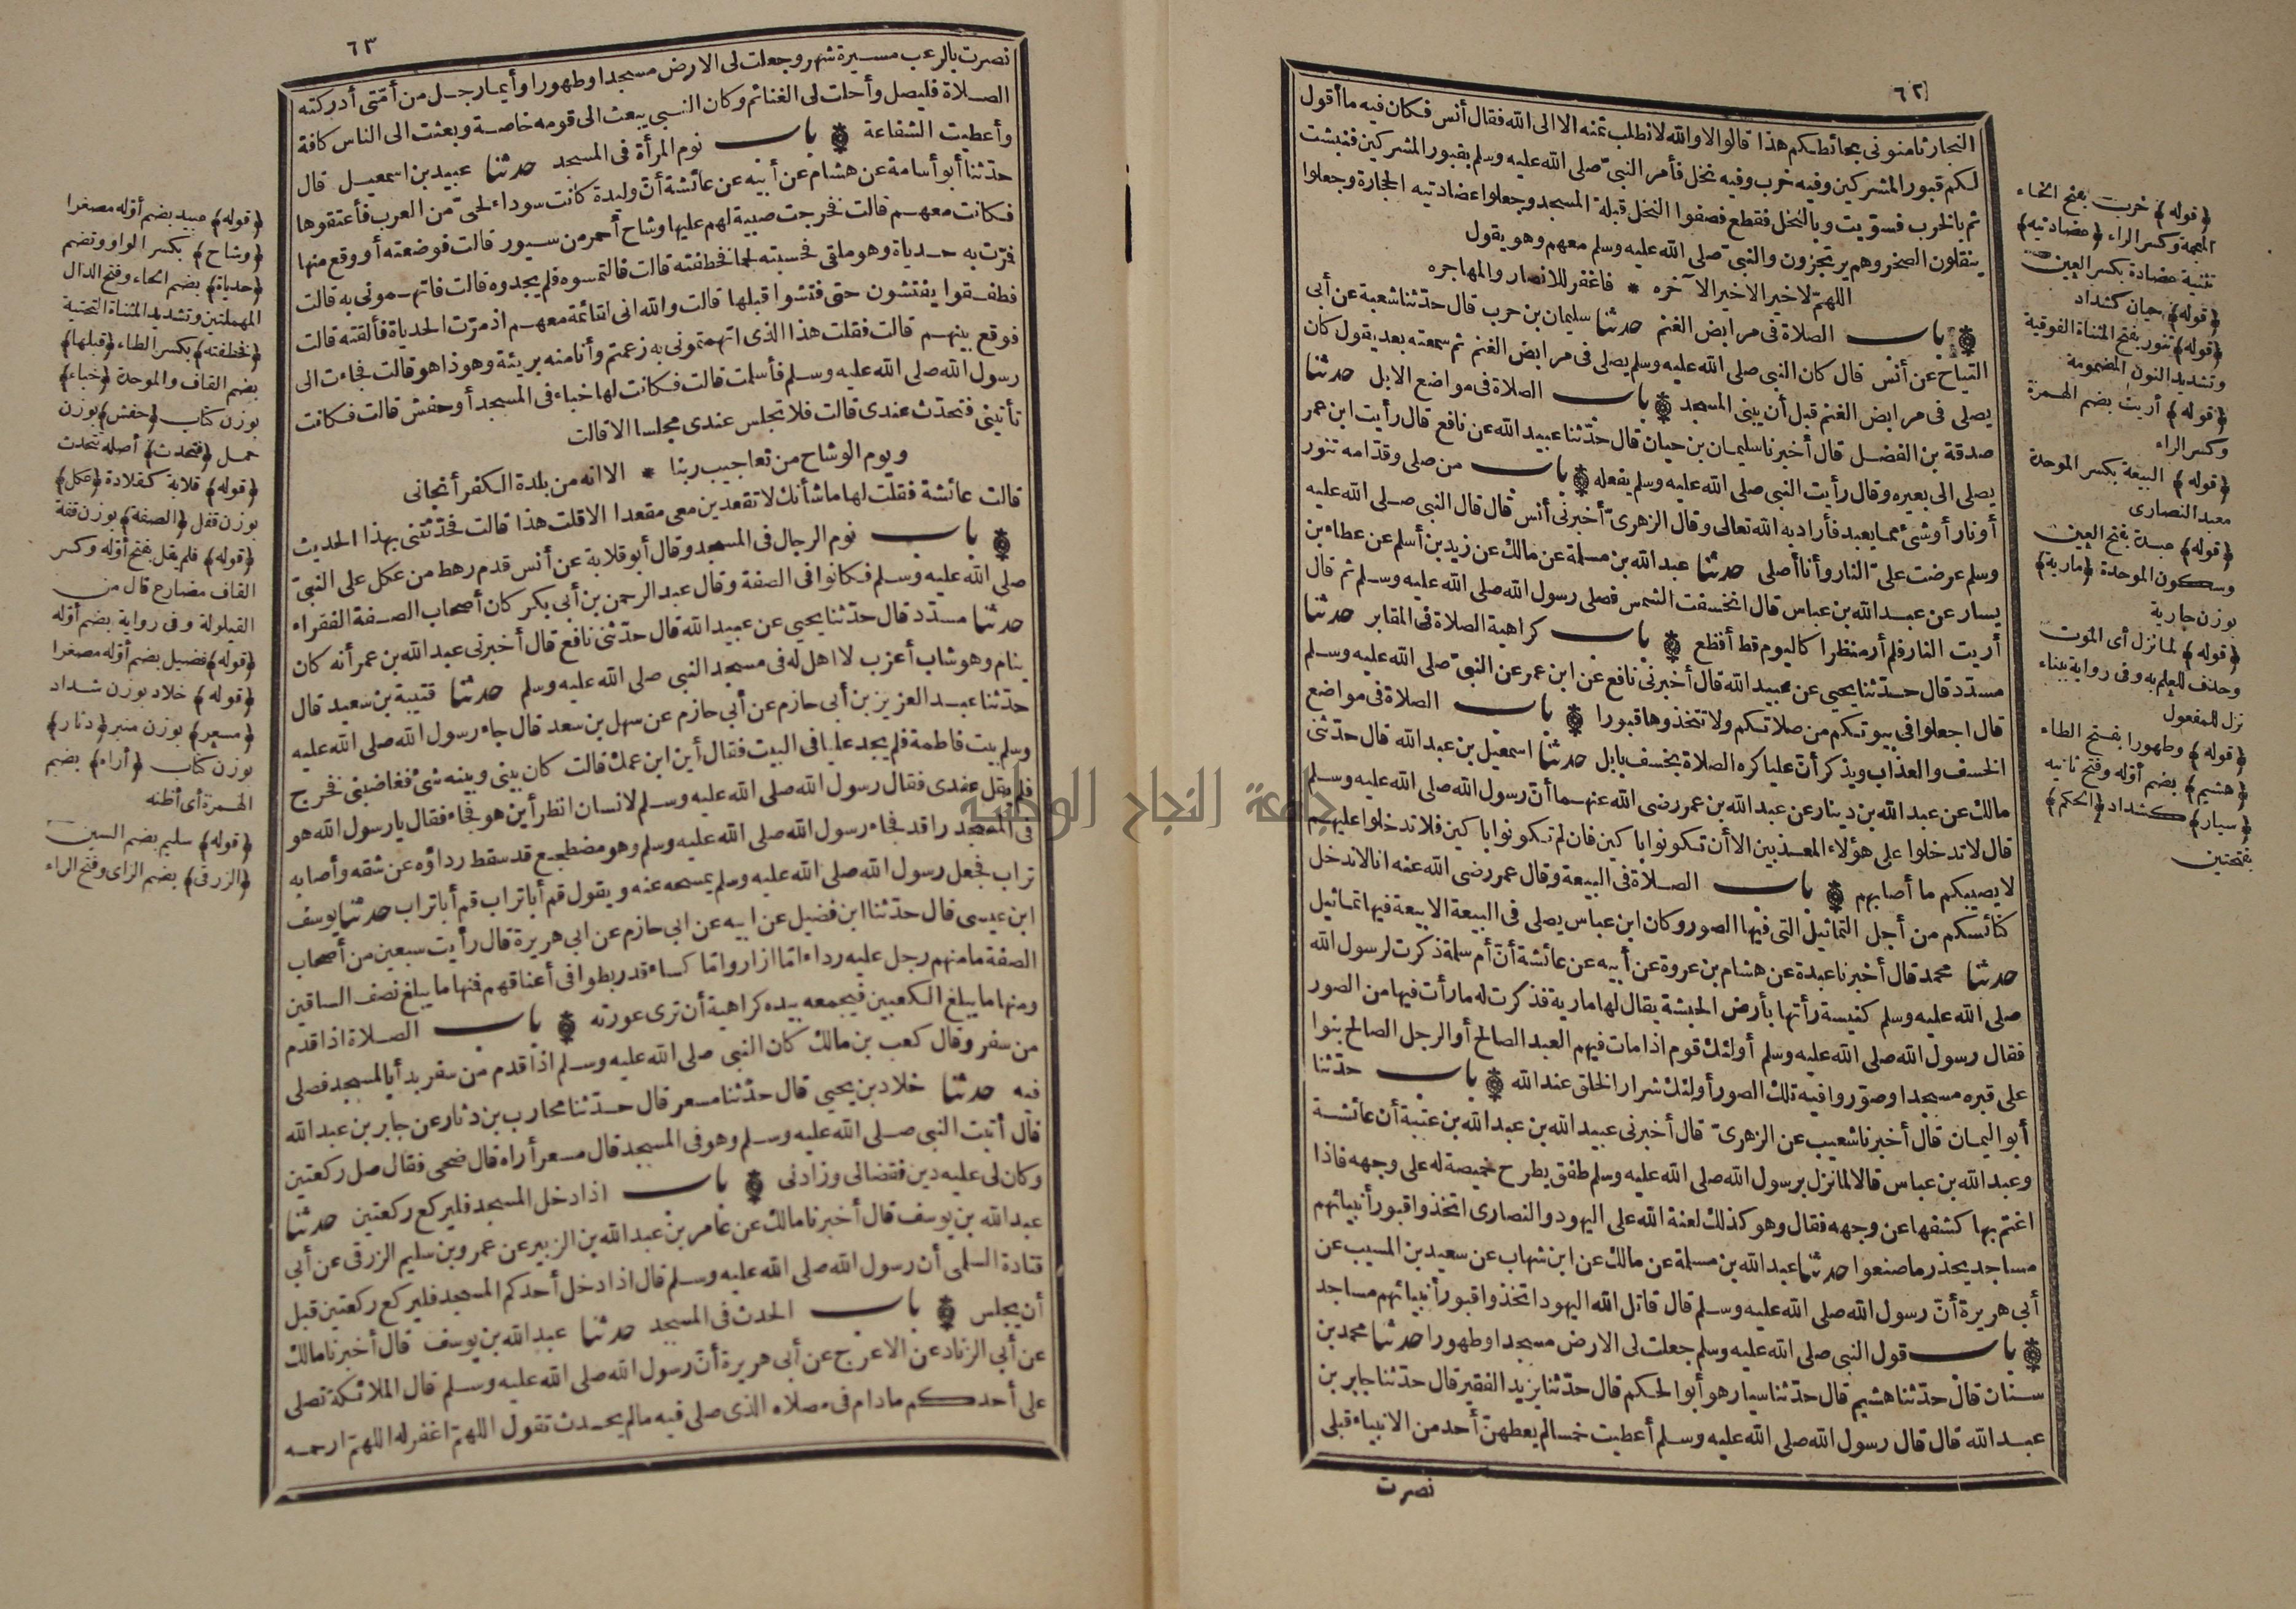 ٦٢
النجار ثامنونى بحائطكم هذا قالوا لا والله لا نطلب ثمنه الا الى الله فقال أنس فكان فيه ما أقول
لكم قبور المشركين وفيه خرب وفيه نخل فأمر النبىّ صلى الله عليه وسلم بقبور المشركين فنبشت
ثم بالخرب فسوّيت وبالنخل فقطع فصفوا النخل قبلة المسجد وجعلوا عضادتيه الحجارة وجعلوا
ينقلون الصخر وهم يرتجزون والنبىّ صلى الله عليه وسلم معهم وهو يقول
اللهمّ لا خير الا خير الآخره * فاغفر للانصار والمهاجره
باب الصلاة فى مرابض الغنم حدثنا سليمان بن حرب قال حدّثنا شعبة عن أبى
التياح عن أنس قال كان النبى صلى الله عليه وسلم يصلى فى مرابض الغنم ثم سمعته بعد يقول كان
يصلى فى مرابض الغنم قبل أن يبنى المسجد باب الصلاة فى مواضع الابل حدثنا
صدقة بن الفضل قال أخبرنا سليمان بن حيان قال حدّثنا عبيد الله عن نافع قال رأيت ابن عمر
يصلى الى بعيره وقال رأيت النبى صلى الله عليه وسلم يفعله باب من صلى وقدّامه تنور
أو نار أو شئ مما يعبد فأراد به الله تعالى وقال الزهرىّ أخبرنى أنس قال قال النبى صلى الله عليه
وسلم عرضت علىّ النار وأنا أصلى حدثنا عبد الله بن مسلمة عن مالك عن زيد بن أسلم عن عطاء بن
يسار عن عبد الله بن عباس قال انخسفت الشمس فصلى رسول الله صلى الله عليه وسلم ثم قال
أريت النار فلم أر منظرا كاليوم قط أفظع باب كراهية الصلاة فى المقابر حدثنا
مسدّد قال حدّثنا يحيى عن عبيد الله قال أخبرنى نافع عن ابن عمر عن النبىّ صلى الله عليه وسلم
قال اجعلوا فى بيوتكم من صلاتكم ولا تتخذوها قبورا باب الصلاة فى مواضع
الخسف والعذاب ويذكر أنّ عليا كره الصلاة بخسف بابل حدثنا اسمعيل بن عبد الله قال حدّثنى
مالك عن عبد الله بن دينار عن عبد الله بن عمر رضى الله عنهما أنّ رسول الله صلى الله عليه وسلم
قال لا تدخلوا على هؤلاء المعذبين الا أن تكونوا باكين فان لم تكونوا باكين فلا تدخلوا عليهم
لا يصيبكم ما أصابهم باب الصلاة فى البيعة وقال عمر رضى الله عنه انا لا ندخل
كنائسكم من أجل التماثيل التى فيها الصور وكان ابن عباس يصلى فى البيعة الا بيعة فيها تماثيل
حدثنا محمد قال أخبرنا عبدة عن هشام بن عروة عن أبيه عن عائشة أنّ أم سلمة ذكرت لرسول الله
صلى الله عليه وسلم كنيسة رأتها بأرض الحبشة يقال لها مارية فذكرت له ما رأت فيها من الصور
فقال رسول الله صلى الله عليه وسلم أولئك قوم اذا مات فيهم العبد الصالح أو الرجل الصالح بنوا
على قبره مسجدا وصوّروا فيه تلك الصور أولئك شرار الخلق عند الله باب حدّثنا
أبو اليمان قال أخبرنا شعيب عن الزهرىّ قال أخبرنى عبيد الله بن عبد الله بن عتبة أن عائشة
وعبد الله بن عباس قالا لما نزل برسول الله صلى الله عليه وسلم طفق يطرح خميصة له على وجهه فاذا
اغتم بها كشفها عن وجهه فقال وهو كذلك لعنة الله على اليهود والنصارى اتخذوا قبور أنبيائهم
مساجد يحذر ما صنعوا حدثنا عبد الله بن مسلمة عن مالك عن ابن شهاب عن سعيد بن المسيب عن
أبى هريرة أنّ رسول الله صلى الله عليه وسلم قال قاتل الله اليهود اتخذوا قبور أنبيائهم مساجد
باب قول النبى صلى الله عليه وسلم جعلت لى الارض مسجدا وطهورا حدثنا محمد بن
سنان قال حدّثنا هشيم قال حدّثنا سيار هو أبو الحكم قال حدّثنا يزيد الفقير قال حدّثنا جابر بن
عبد الله قال قال رسول الله صلى الله عليه وسلم أعطيت خمسا لم يعطهنّ أحد من الانبياء قبلى
نصرت
(قوله) خرب بفتح الخاء
المعجمة وكسر الراء (عضادتيه)
تثنية عضادة بكسر العين
(قوله) حيان كشداد
(قوله) تنور بفتح المثناة الفوقية
وتشديد النون المضمومة
(قوله) أريت بضم الهمزة
وكسر الراء
(قوله) البيعة بكسر الموحدة
معبد النصارى
(قوله) عبدة بفتح العين
وسكون الموحدة (مارية)
بوزن جارية
(قوله) لما نزل أى الموت
وحذف للعلم به وفى رواية ببناء
نزل للمفعول
(قوله) وطهورا بفتح الطاء
(هشيم) بضم أوّله وفتح ثانيه
(سيار) كشداد (الحكم)
بفتحتين
٦٣
نصرت بالرعب مسيرة شهر وجعلت لى الارض مسجدا وطهورا وأيما رجل من أمّتى أدركته
الصلاة فليصل وأحلت لى الغنائم وكان النبى يبعث الى قومه خاصة وبعثت الى الناس كافة
وأعطيت الشفاعة باب نوم المرأة فى المسجد حدثنا عبيد بن اسمعيل قال
حدّثنا أبو أسامة عن هشام عن أبيه عن عائشة أنّ وليدة كانت سوداء لحىّ من العرب فأعتقوها
فكانت معهم قالت فخرجت صبية لهم عليها وشاح أحمر من سيور قالت فوضعته أو وقع منها
فمرّت به حدياة وهو ملقى فحسبته لحما فخطفته قالت فالتمسوه فلم يجدوه قالت فاتهمونى به قالت
فطفقوا يفتشون حتى فتشوا قبلها قالت والله انى لقائمة معهم اذ مرّت الحدياة فألقته قالت
فوقع بينهم قالت فقلت هذا الذى اتهمتمونى به زعمتم وأنا منه بريئة وهو ذا هو قالت فجاءت الى
رسول الله صلى الله عليه وسلم فأسلمت قالت فكانت لها خباء فى المسجد أو حفش قالت فكانت
تأتينى فتحدّث عندى قالت فلا تجلس عندى مجلسا الا قالت
ويوم الوشاح من تعاجيب ربنا * الا انه من بلدة الكفر أنجانى
قالت عائشة فقلت لها ما شأنك لا تقعدين معى مقعدا الا قلت هذا قالت فحدّثتنى بهذا الحديث
باب نوم الرجال فى المسجد وقال أبو قلابة عن أنس قدم رهط من عكل على النبىّ
صلى الله عليه وسلم فكانوا فى الصفة وقال عبد الرحمن بن أبى بكر كان أصحاب الصفة الفقراء
حدثنا مسدّد قال حدّثنا يحيى عن عبيد الله قال حدّثنى نافع قال أخبرنى عبد الله بن عمر أنه كان
ينام وهو شاب أعزب لا اهل له فى مسجد النبى صلى الله عليه وسلم حدثنا قتيبة بن سعيد قال
حدّثنا عبد العزيز بن أبى حازم عن أبى حازم عن سهل بن سعد قال جاء رسول الله صلى الله عليه
وسلم بيت فاطمة فلم يجد عليا فى البيت فقال أين ابن عمك قالت كان بينى وبينه شئ فغاضبنى فخرج
فلم يقل عندى فقال رسول الله صلى الله عليه وسلم لانسان انظر أين هو فجاء فقال يا رسول الله هو
فى المسجد راقد فجاء رسول الله صلى الله عليه وسلم وهو مضطجع قد سقط رداؤه عن شقه وأصابه
تراب فجعل رسول الله صلى الله عليه وسلم يمسحه عنه ويقول قم أبا تراب قم أبا تراب حدثنا يوسف
ابن عيسى قال حدّثنا ابن فضيل عن ابيه عن ابى حازم عن ابى هريرة قال رأيت سبعين من أصحاب
الصفة ما منهم رجل عليه رداء امّا ازار وامّا كساء قد ربطوا فى أعناقهم فمنها ما يبلغ نصف الساقين
ومنها ما يبلغ الكعبين فيجمعه بيده كراهية أن ترى عورته باب الصلاة اذا قدم
من سفر وقال كعب بن مالك كان النبى صلى الله عليه وسلم اذا قدم من سفر بدأ بالمسجد فصلى
فيه حدثنا خلاد بن يحيى قال حدّثنا مسعر قال حدّثنا محارب بن دثار عن جابر بن عبد الله
قال أتيت النبى صلى الله عليه وسلم وهو فى المسجد قال مسعر أراه قال ضحى فقال صل ركعتين
وكان لى عليه دين فقضانى وزادنى باب اذا دخل المسجد فليركع ركعتين حدثنا
عبد الله بن يوسف قال أخبرنا مالك عن عامر بن عبد الله بن الزبير عن عمرو بن سليم الزرقى عن أبى
قتادة السلمى أن رسول الله صلى الله عليه وسلم قال اذا دخل أحدكم المسجد فليركع ركعتين قبل
أن يجلس باب الحدث فى المسجد حدثنا عبد الله بن يوسف قال أخبرنا مالك
عن أبى الزناد عن الاعرج عن أبى هريرة أنّ رسول الله صلى الله عليه وسلم قال الملائكة تصلى
على أحدكم ما دام فى مصلاه الذى صلى فيه ما لم يحدث تقول اللهمّ اغفر له اللهمّ ارحمه
(قوله) عبيد بضم أوّله مصغرا
(وشاح) بكسر الواو وتضم
(حدياة) بضم الحاء وفتح الدال
المهملتين وتشديد المثناة التحتية
(فخطفته) بكسر الطاء (قبلها)
بضم القاف والموحدة (خباء)
بوزن كتاب (حفش) بوزن
حمل (فتحدث) أصله تتحدث
(قوله) قلابة كقلادة (عكل)
بوزن قفل (الصفة) بوزن قفة
(قوله) فلم يقل بفتح أوّله وكسر
القاف مضارع قال من
القيلولة وفى رواية بضم أوّله
(قوله) فضيل بضم أوّله مصغرا
(قوله) خلاد بوزن شداد
(مسعر) بوزن منبر (دثار)
بوزن كتاب (أراه) بضم
الهمزة أى أظنه
(قوله) سليم بضم السين
(الزرقى) بضم الزاى وفتح الراء
جامعة النجاح الوطنية